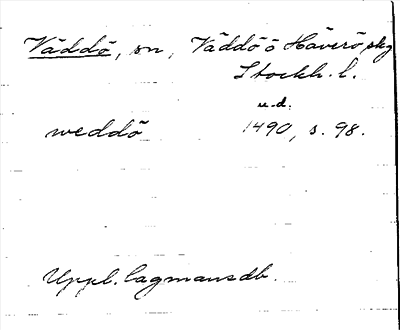 Väddö, sn, Väddö o Häverö, skg
Stockh. l.
u.d.
weddö 1490, s. 98.
Uppl. lagmansdb.